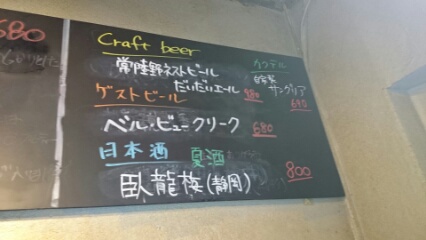 680
Craft beer
常陸野ネストビール
だいだいエール 880
ゲストビール
ベル・ビュークリーク 680
日本酒 夏酒
臥龍梅(静岡) 800
カクテル
自家製
サングリア
690